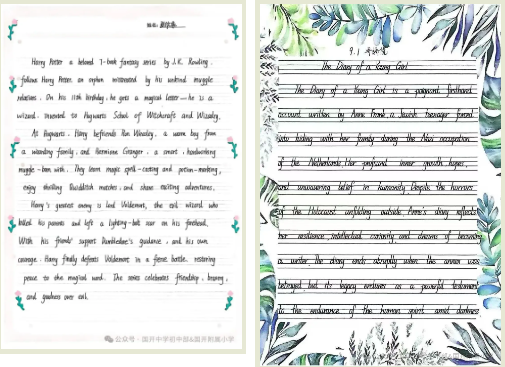 Harry Potter a beloved 7-book fantasy series by J.K. Rowling,
follows Harry Potter, an orphan mistreated by his unkind muggle
relatives. On his 11th birthday, he gets a magical letter — he is a
wizard, invented to Hogwarts School of Witchcraft and Wizardry.
At Hogwarts, Harry befriends Ron Weasley, a warm boy from
a wizarding family, and Hermione Granger, a smart, hardworking
muggle-born witch. They learn magic spell-casting and potion-making,
enjoy thrilling Quidditch matches, and share exciting adventures.
Harry's greatest enemy is Lord Voldemort, the evil wizard who
killed his parents and left a lighting-bolt scar on his forehead.
With his friends' support Dumbledore's guidance, and his own
courage, Harry finally defeats Voldemort in a fierce battle, restoring
peace to the magical world. The series celebrates friendship, bravery,
and goodness over evil.
公众号·国开中学初中部&国开附属小学
9.1
The Diary of a Young Girl
The Diary of a Young Girl is a poignant firsthand
account written by Anne Frank a Jewish teenager forced
into hiding with her family during the Nazi occupation
of the Netherlands. Her profound inner growth hopes,
and unwavering belief in humanity Despite the horrors
of the Holocaust unfolding outside Anne's diary reflects
her resilience intellectual curiosity and dreams of becoming
a writer the diary ends abruptly when the annex was
betrayed but its legacy endures as a powerful testament
to the endurance of the human spirit amid darkness